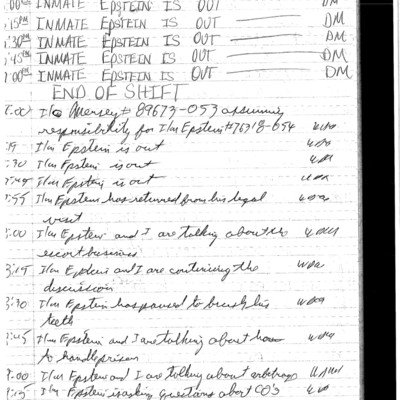 :00 INMATE EPSTEIN IS OUT DM
:15PM INMATE EPSTEIN IS OUT DM
:30PM INMATE EPSTEIN IS OUT DM
:45PM INMATE EPSTEIN IS OUT DM
:00PM INMATE EPSTEIN IS OUT DM
END OF SHIFT
:00 I/m Mersey # 89673-053 assuming
responsibility for I/m Epstein #76318-054
I/m Epstein is out
:30 I/m Epstein is out
:45 I/m Epstein is out
:55 I/m Epstein has returned from his legal
visit
:00 I/m Epstein and I are talking about his
escort business
:15 I/m Epstein and I are continuing the
discussion
:30 I/m Epstein has paused to brush his
teeth
:45 I/m Epstein and I are talking about how
to handle prison
:00 I/m Epstein and I are talking about
:15 I/m Epstein is asking questions about CO's